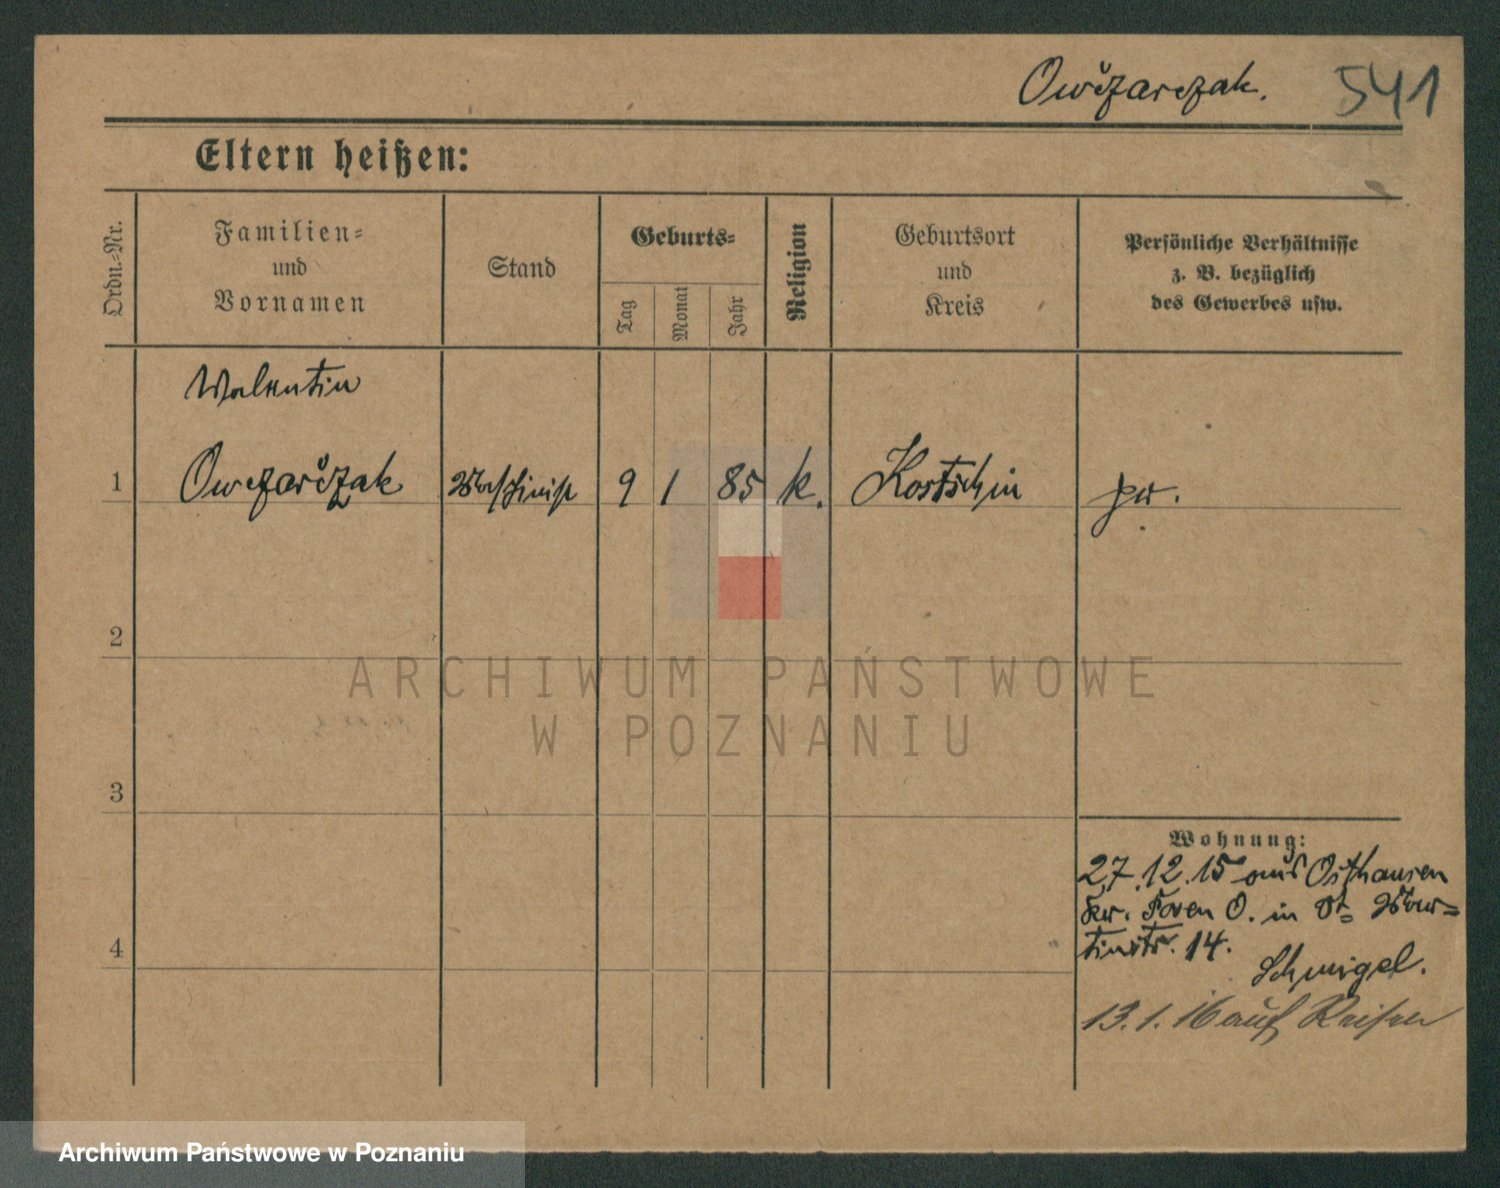 Owczarczak.
541
Eltern heißen:
Ordn.-Nr.
Familien-
und
Vornamen
Stand
Geburts-
Tag
Monat
Jahr
Religion
Geburtsort
und
Kreis
Persönliche Verhältnisse
z. B. bezüglich
des Gewerbes usw.
Walentin
1 Owczarczak Maschinist 9 1 85 k. Kostschin pr.
2
ARCHIWUM PAŃSTWOWE
W POZNANIU
3
Wohnung:
27.12.15 aus Osthausen
Kr. O. in St. Mar-
4
tinstr. 14.
Schmigel.
13.1.16 auf Reisen
Archiwum Państwowe w Poznaniu